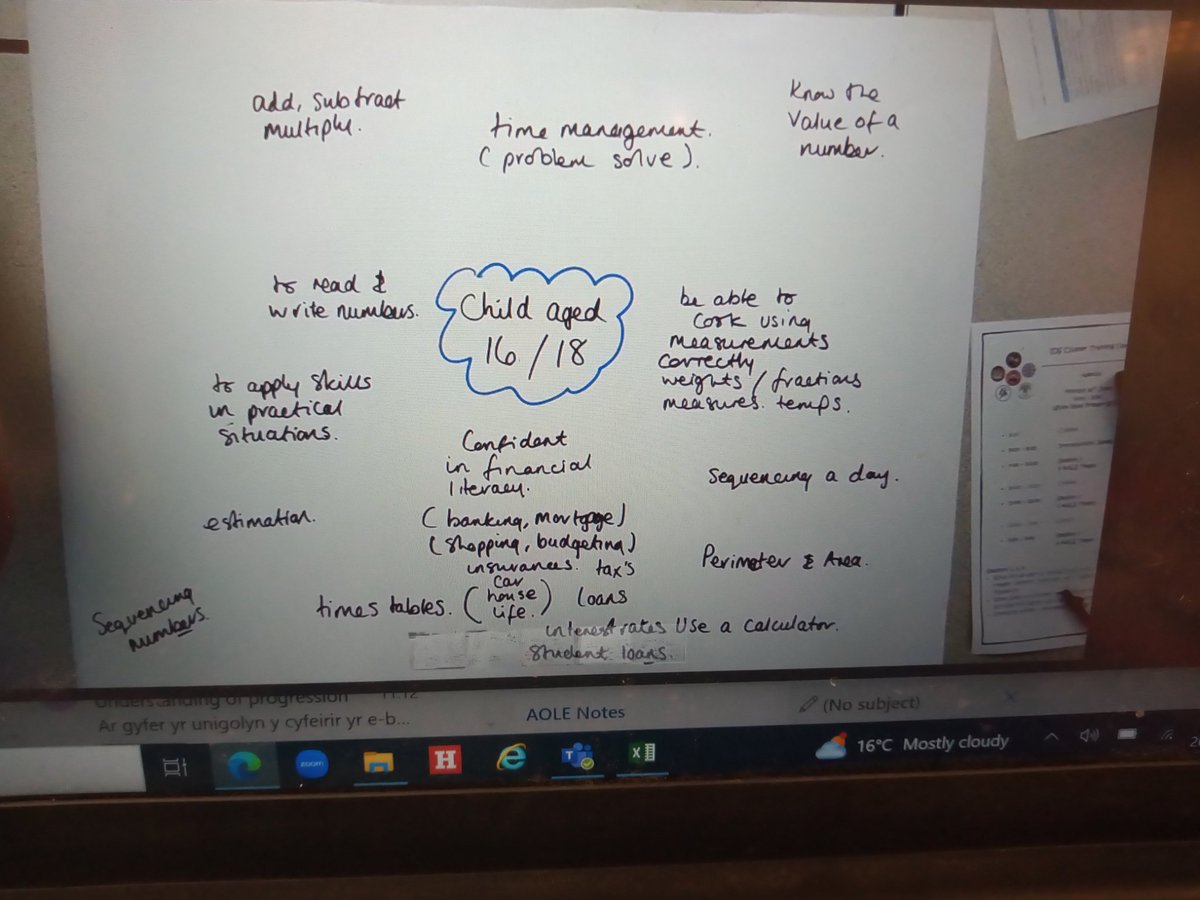 add, subtract
multiply.
time management.
(problem solve).
Know the
Value of a
number.
to read &
write numbers.
Child aged
16/18
be able to
cook using
measurements
correctly
weights / fractions
measures. temps.
to apply skills
in practical
situations.
Confident
in financial
literacy.
(banking, mortgage)
(shopping, budgeting)
insurances. tax's
car
house
life.
loans
interest rates
student loans.
Sequencing a day.
estimation.
Perimeter & Area.
Sequencing
numbers.
times tables.
Use a calculator.
Understanding of progression 11:12
Ar gyfer yr unigolyn y cyfeirir yr e-b...
AOLE Notes
(No subject)
zoom
H
16°C Mostly cloudy